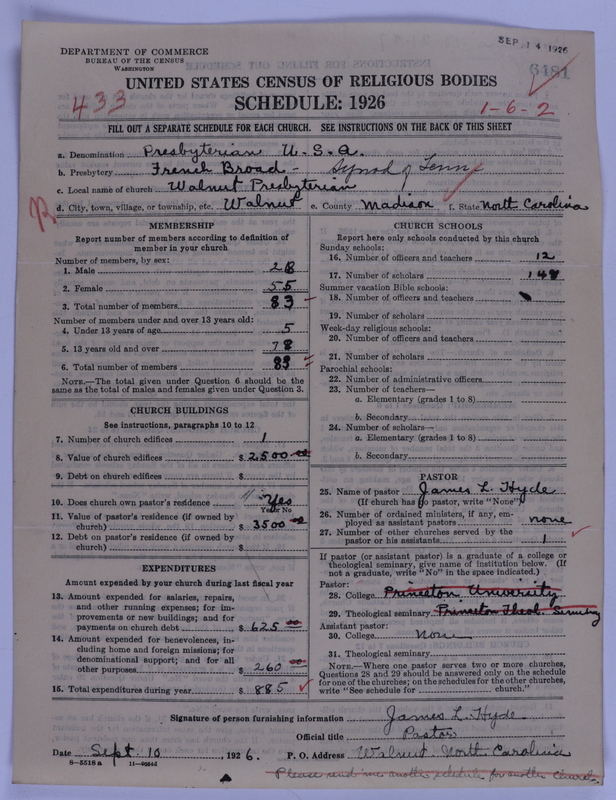 SEP 14 1926
DEPARTMENT OF COMMERCE
BUREAU OF THE CENSUS
WASHINGTON
6481
UNITED STATES CENSUS OF RELIGIOUS BODIES
433
SCHEDULE: 1926
1-6-2
FILL OUT A SEPARATE SCHEDULE FOR EACH CHURCH. SEE INSTRUCTIONS ON THE BACK OF THIS SHEET
a. Denomination Presbyterian U.S.A.
b. Presbytery French Broad - Synod of Tenn
c. Local name of church Walnut Presbyterian
d. City, town, village, or township, etc. Walnut e. County Madison f. State North Carolina
MEMBERSHIP
Report number of members according to definition of
member in your church
Number of members, by sex:
1. Male 28
2. Female 55
3. Total number of members 83
Number of members under and over 13 years old:
4. Under 13 years of age 5
5. 13 years old and over 78
6. Total number of members 83
NOTE.—The total given under Question 6 should be the
same as the total of males and females given under Question 3.
CHURCH BUILDINGS
See instructions, paragraphs 10 to 12
7. Number of church edifices 1
8. Value of church edifices $2,500 00
9. Debt on church edifices $
10. Does church own pastor's residence Yes
Yes or No
11. Value of pastor's residence (if owned by
church) $3500 00
12. Debt on pastor's residence (if owned by
church) $
EXPENDITURES
Amount expended by your church during last fiscal year
13. Amount expended for salaries, repairs,
and other running expenses; for im-
provements or new buildings; and for
payments on church debt $625 00
14. Amount expended for benevolences, in-
cluding home and foreign missions; for
denominational support; and for all
other purposes $260 00
15. Total expenditures during year $885
CHURCH SCHOOLS
Report here only schools conducted by this church
Sunday schools:
16. Number of officers and teachers 12
17. Number of scholars 148
Summer vacation Bible schools:
18. Number of officers and teachers
19. Number of scholars
Week-day religious schools:
20. Number of officers and teachers
21. Number of scholars
Parochial schools:
22. Number of administrative officers
23. Number of teachers—
a. Elementary (grades 1 to 8)
b. Secondary
24. Number of scholars—
a. Elementary (grades 1 to 8)
b. Secondary
PASTOR
25. Name of pastor James L. Hyde
(If church has no pastor, write "None")
26. Number of ordained ministers, if any, em-
ployed as assistant pastors none
27. Number of other churches served by the
pastor or his assistants 1
If pastor (or assistant pastor) is a graduate of a college or
theological seminary, give name of institution below. (If
not a graduate, write "No" in the space indicated.)
Pastor:
28. College Princeton University
29. Theological seminary Princeton Theol. Seminary
Assistant pastor:
30. College None
31. Theological seminary
NOTE.—Where one pastor serves two or more churches,
Questions 28 and 29 should be answered only on the schedule
for one of the churches; on the schedules for the other churches,
write "See schedule for church."
Signature of person furnishing information James L. Hyde
Official title Pastor
Date Sept. 10, 1926. P. O. Address Walnut, North Carolina
8-5518 a
Please send me another schedule for another Church.